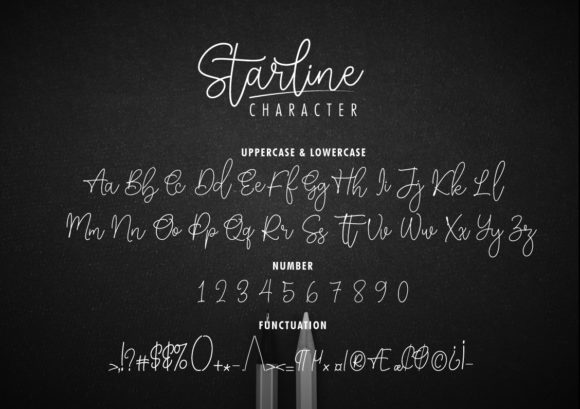 Starline
CHARACTER
UPPERCASE & LOWERCASE
Aa Bb Cc Dd Ee Ff Gg Hh Ii Jj Kk Ll
Mm Nn Oo Pp Qq Rr Ss Tt Uu Vv Ww Xx Yy Zz
NUMBER
1 2 3 4 5 6 7 8 9 0
FUNCTUATION
>,!?#$$%()+*-/\><=¶µ×¤|®ÆæŁØ©¿¡-